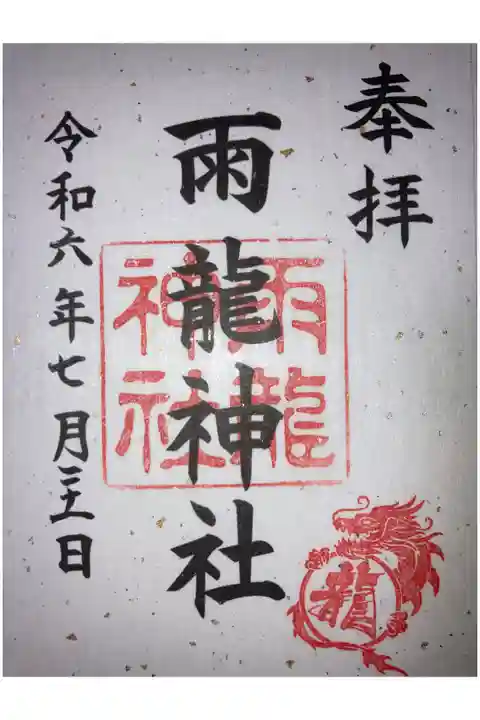 奉拝
雨龍神社
雨龍
神社
龍
令和六年七月 日